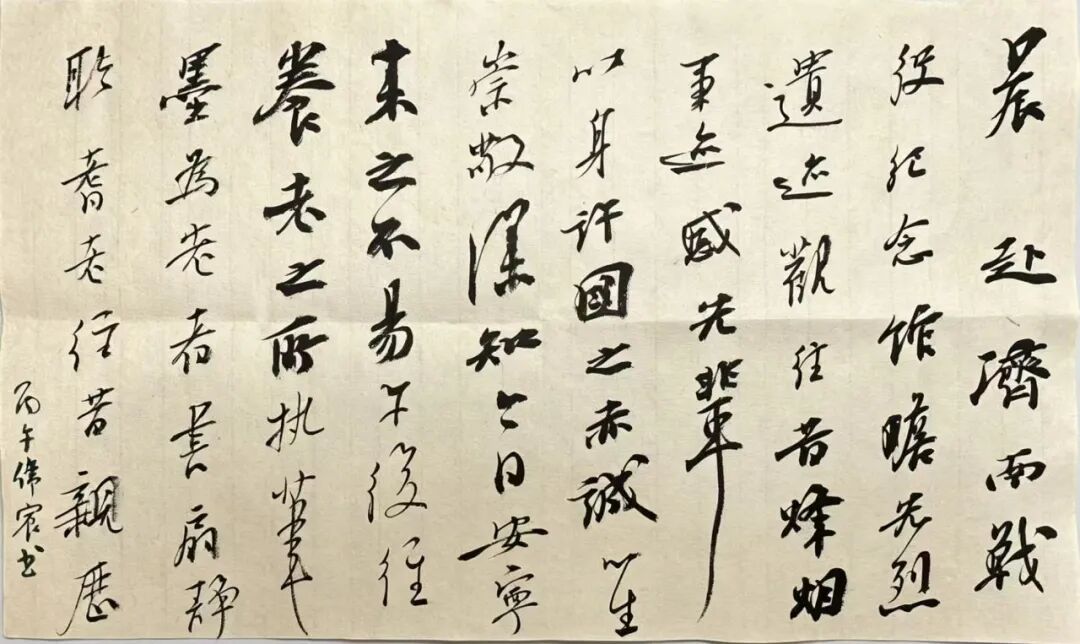 晨赴濟南戰
役紀念馆瞻先烈
遺迹觀往昔烽烟
事迹感先輩
以身許國之赤誠心生
崇敬深知今日安寧
来之不易午後往
養老之所执筆
墨為老者書扇靜
聆耆老往昔親歷
丙午偉宸书